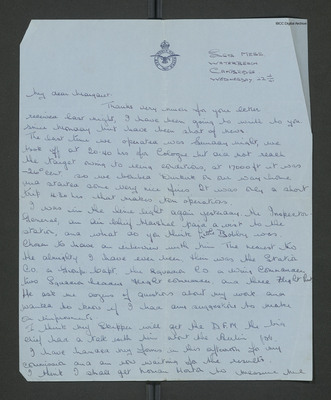 IBCC Digital Archive
SGTS MESS
WATERBEACH
CAMBRIDGE
WEDNESDAY 22nd
My dear Margaret,
Thanks very much for your letter
received last night, I have been going to write to you
since Monday but have been short of news.
The last time we operated was Sunday night, we
took off at 20.00 hrs for Cologne but did not reach
the target owing to icing conditions, at 17000 ft it was
-26 cent so we bombed on the way home
and started some very nice fires. It was only a short
trip 4 hrs that makes nine operations.
I was in the lime light again yesterday the Inspector
General, an Air Chief Marshal paid a visit to the
station, and what do you think, Bobbie was
chosen to have an interview with him. The nearest to
the almighty I have ever been there was the Station
C.O. a Group Capt, the Squadron C.O. a Wing Commander,
two Squadron leaders, flight commanders and three Flight Lts
He ask me dozens of questions about my work and
wanted to know if I had any suggestions to make
on improvements.
I think my Skipper will get the D.F.M. the big
chief had a talk with him about the Berlin trip.
I have handed my forms in this afternoon for my
commission and am now waiting for the results
I think I shall get to measure me